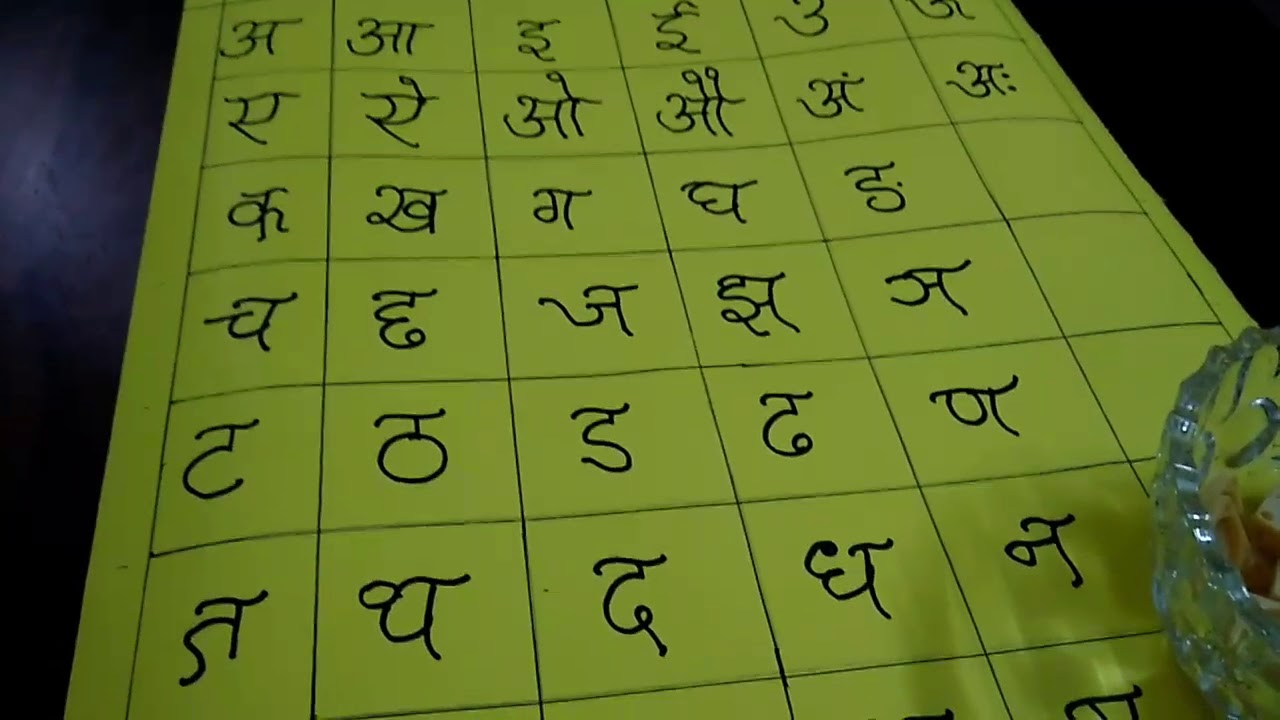 अ आ इ ई उ ऊ
ए ऐ ओ औ अं अः
क ख ग घ ङ
च छ ज झ ञ
ट ठ ड ढ ण
त थ द ध न